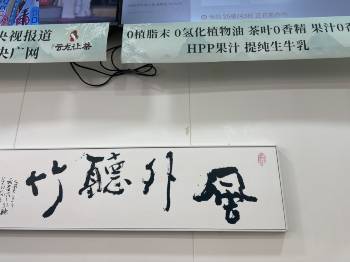 央视报道
央广网
云龙让茶
0植脂末 0氢化植物油 茶叶0香精 果汁0香
HPP果汁 提纯生牛乳
風外聽竹